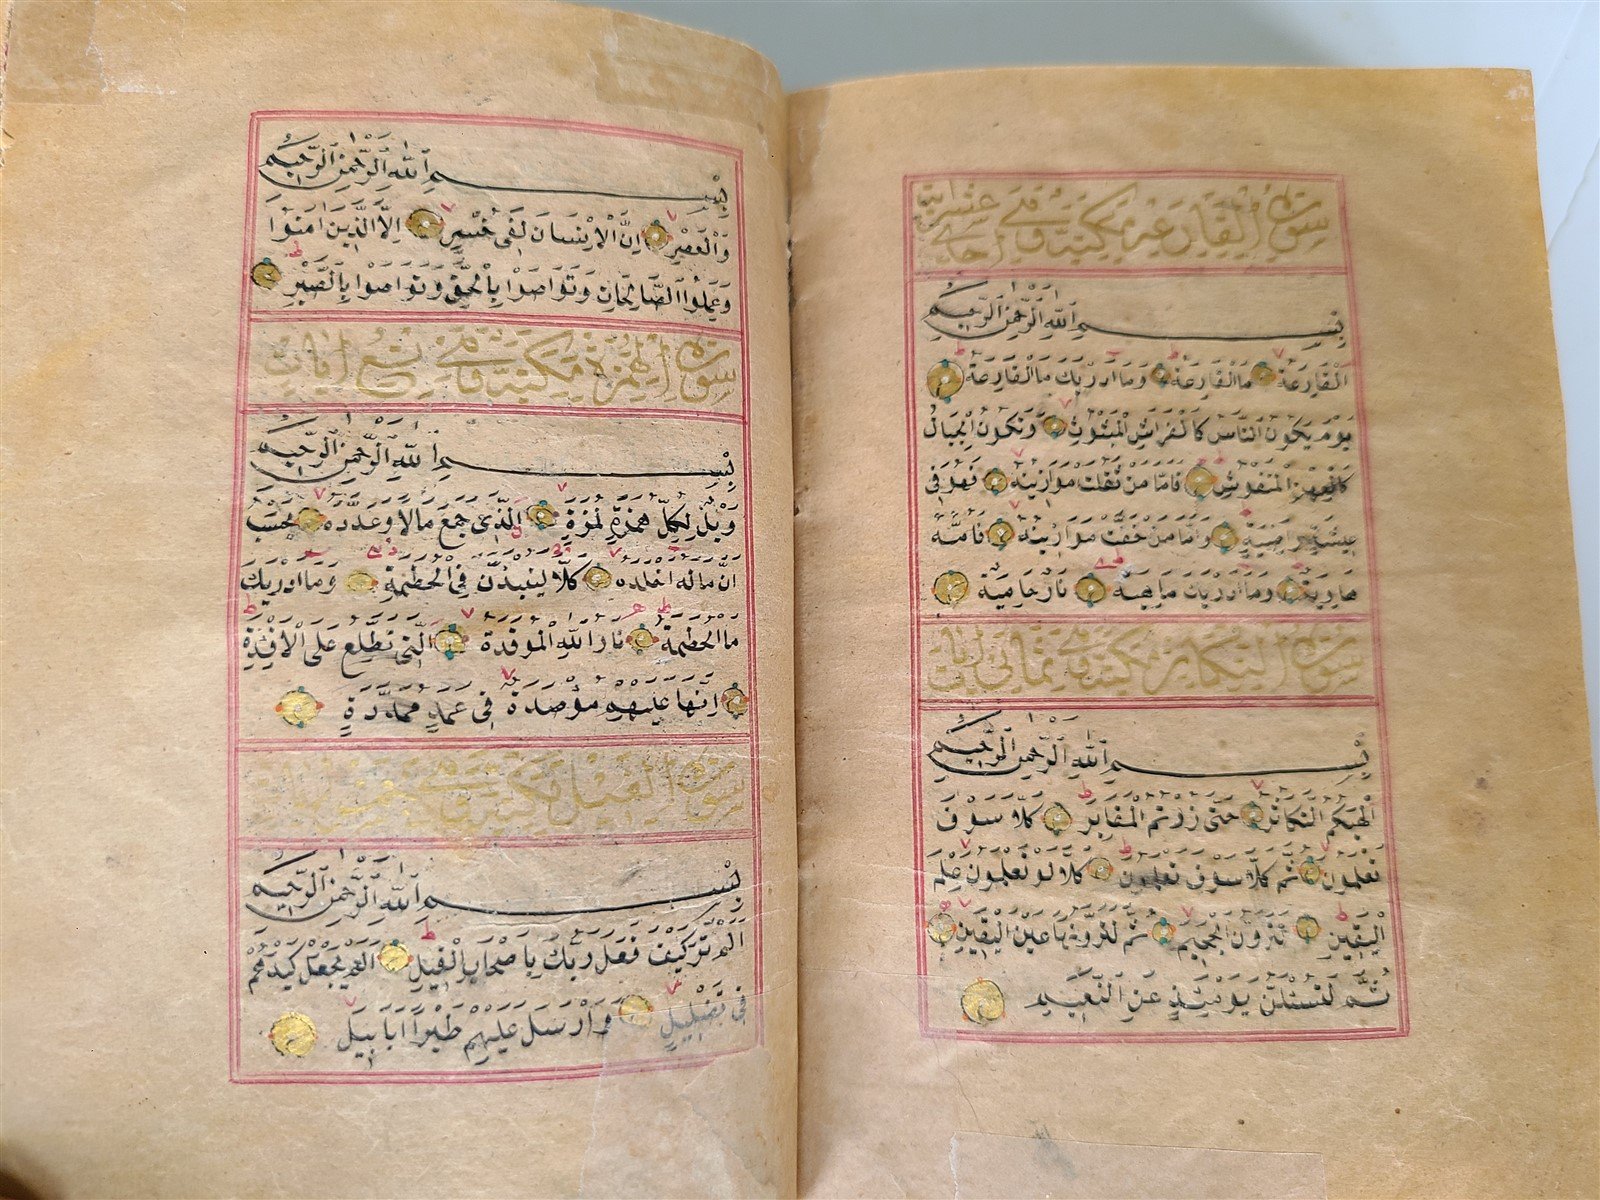 سورة القارعة مكية وهي احدى عشر اية
بِسْمِ اللهِ الرَّحْمٰنِ الرَّحِيمِ
اَلْقَارِعَةُ مَا الْقَارِعَةُ وَمَا ادْرٰيكَ مَا الْقَارِعَةُ
يَوْمَ يَكُونُ النَّاسُ كَالْفَرَاشِ الْمَبْثُوثِ وَتَكُونُ الْجِبَالُ
كَالْعِهْنِ الْمَنْفُوشِ فَامَّا مَنْ ثَقُلَتْ مَوَازِينُهُ فَهُوَ فِى
عِيشَةٍ رَاضِيَةٍ وَامَّا مَنْ خَفَّتْ مَوَازِينُهُ فَامُّهُ
هَاوِيَةٌ وَمَا ادْرٰيكَ مَا هِيَهْ نَارٌ حَامِيَةٌ
سورة التكاثر مكية وهي ثماني ايات
بِسْمِ اللهِ الرَّحْمٰنِ الرَّحِيمِ
اَلْهٰيكُمُ التَّكَاثُرُ حَتّٰى زُرْتُمُ الْمَقَابِرَ كَلَّا سَوْفَ
تَعْلَمُونَ ثُمَّ كَلَّا سَوْفَ تَعْلَمُونَ كَلَّا لَوْ تَعْلَمُونَ عِلْمَ
الْيَقِينِ لَتَرَوُنَّ الْجَحِيمَ ثُمَّ لَتَرَوُنَّهَا عَيْنَ الْيَقِينِ
ثُمَّ لَتُسْئَلُنَّ يَوْمَئِذٍ عَنِ النَّعِيمِ
بِسْمِ اللهِ الرَّحْمٰنِ الرَّحِيمِ
وَالْعَصْرِ اِنَّ الْاِنْسَانَ لَفِى خُسْرٍ اِلَّا الَّذِينَ اٰمَنُوا
وَعَمِلُوا الصَّالِحَاتِ وَتَوَاصَوْا بِالْحَقِّ وَتَوَاصَوْا بِالصَّبْرِ
سورة الهمزة مكية وهي تسع ايات
بِسْمِ اللهِ الرَّحْمٰنِ الرَّحِيمِ
وَيْلٌ لِكُلِّ هُمَزَةٍ لُمَزَةٍ اَلَّذِى جَمَعَ مَالًا وَعَدَّدَهُ يَحْسَبُ
اَنَّ مَالَهُ اَخْلَدَهُ كَلَّا لَيُنْبَذَنَّ فِى الْحُطَمَةِ وَمَا ادْرٰيكَ
مَا الْحُطَمَةُ نَارُ اللهِ الْمُوقَدَةُ اَلَّتِى تَطَّلِعُ عَلَى الْاَفْئِدَةِ
اِنَّهَا عَلَيْهِمْ مُؤْصَدَةٌ فِى عَمَدٍ مُمَدَّدَةٍ
سورة الفيل مكية وهي خمس ايات
بِسْمِ اللهِ الرَّحْمٰنِ الرَّحِيمِ
اَلَمْ تَرَ كَيْفَ فَعَلَ رَبُّكَ بِاَصْحَابِ الْفِيلِ اَلَمْ يَجْعَلْ كَيْدَهُمْ
فِى تَضْلِيلٍ وَاَرْسَلَ عَلَيْهِمْ طَيْرًا اَبَابِيلَ